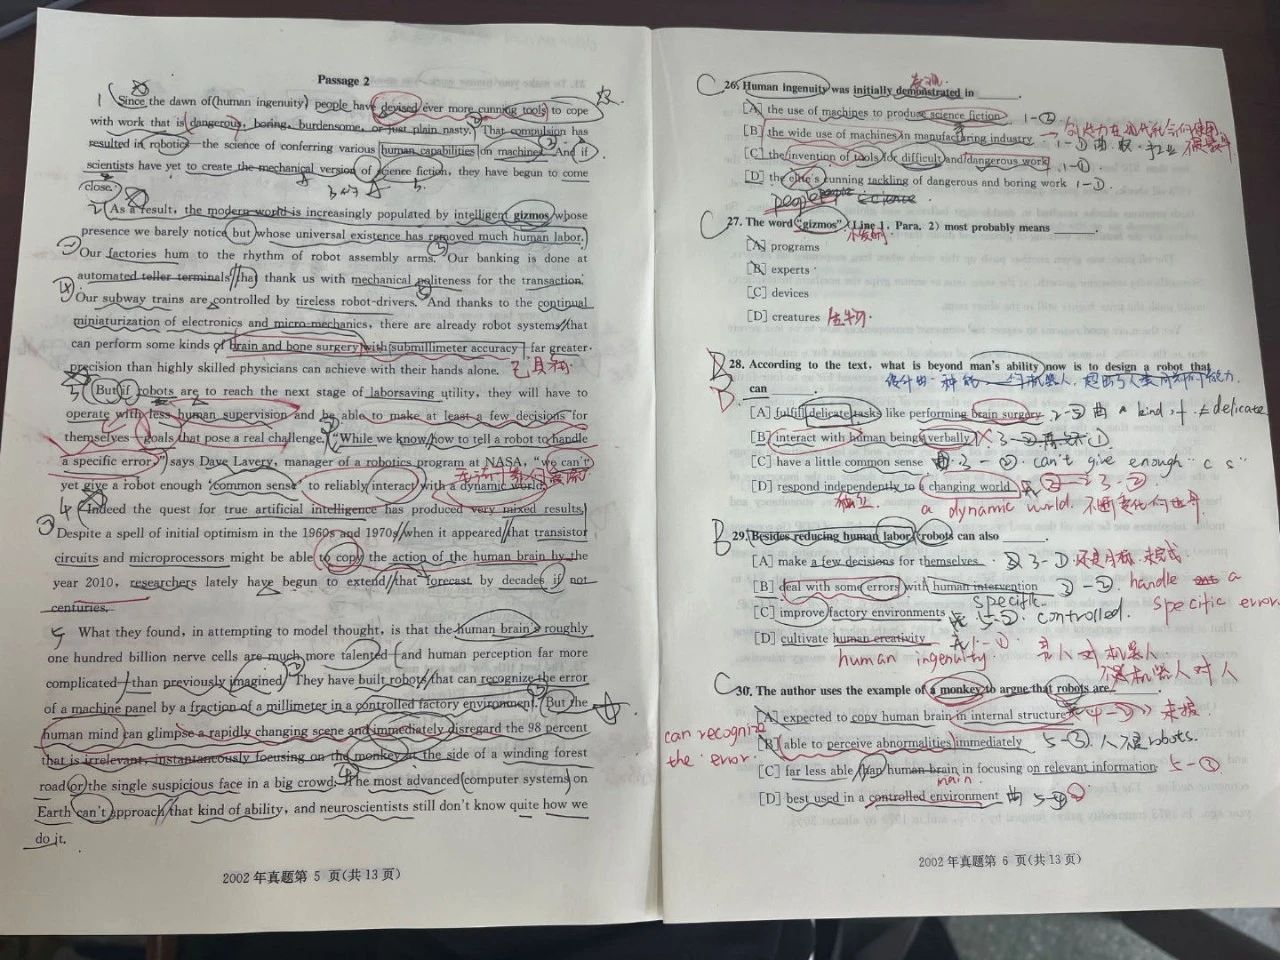 Passage 2
1 Since the dawn of human ingenuity, people have devised ever more cunning tools to cope
with work that is dangerous, boring, burdensome, or just plain nasty. That compulsion has
resulted in robotics—the science of conferring various human capabilities on machines. And if
scientists have yet to create the mechanical version of science fiction, they have begun to come
close.
2 As a result, the modern world is increasingly populated by intelligent gizmos whose
presence we barely notice but whose universal existence has removed much human labor.
Our factories hum to the rhythm of robot assembly arms. Our banking is done at
automated teller terminals that thank us with mechanical politeness for the transaction.
Our subway trains are controlled by tireless robot-drivers. And thanks to the continual
miniaturization of electronics and micro-mechanics, there are already robot systems that
can perform some kinds of brain and bone surgery with submillimeter accuracy far greater
precision than highly skilled physicians can achieve with their hands alone.
3 But if robots are to reach the next stage of laborsaving utility, they will have to
operate with less human supervision and be able to make at least a few decisions for
themselves goals that pose a real challenge. "While we know how to tell a robot to handle
a specific error," says Dave Lavery, manager of a robotics program at NASA, "we can't
yet give a robot enough 'common sense' to reliably interact with a dynamic world."
4 Indeed the quest for true artificial intelligence has produced very mixed results.
Despite a spell of initial optimism in the 1960s and 1970s when it appeared that transistor
circuits and microprocessors might be able to copy the action of the human brain by the
year 2010, researchers lately have begun to extend that forecast by decades if not
centuries.
5 What they found, in attempting to model thought, is that the human brain's roughly
one hundred billion nerve cells are much more talented and human perception far more
complicated than previously imagined. They have built robots that can recognize the error
of a machine panel by a fraction of a millimeter in a controlled factory environment. But the
human mind can glimpse a rapidly changing scene and immediately disregard the 98 percent
that is irrelevant, instantaneously focusing on the monkey at the side of a winding forest
road or the single suspicious face in a big crowd. The most advanced computer systems on
Earth can't approach that kind of ability, and neuroscientists still don't know quite how we
do it.
2002 年真题第 5 页(共 13 页)
C 26. Human ingenuity was initially demonstrated in ______.
[A] the use of machines to produce science fiction 1-②
[B] the wide use of machines in manufacturing industry
[C] the invention of tools for difficult and dangerous work 1-①
[D] the elite's cunning tackling of dangerous and boring work 1-①
people science
C 27. The word "gizmos" (Line 1, Para. 2) most probably means ______.
[A] programs
[B] experts
[C] devices
[D] creatures 生物.
B 28. According to the text, what is beyond man's ability now is to design a robot that
can ______.
[A] fulfill delicate tasks like performing brain surgery 2-⑤
[B] interact with human beings verbally
[C] have a little common sense 3-② can't give enough "c s"
[D] respond independently to a changing world
独立 a dynamic world.
B 29. Besides reducing human labor, robots can also ______.
[A] make a few decisions for themselves 3-①
[B] deal with some errors with human intervention 3-② handle a
specific specific error
[C] improve factory environments 5-② controlled.
[D] cultivate human creativity 1-①
human ingenuity
C 30. The author uses the example of a monkey to argue that robots are ______.
[A] expected to copy human brain in internal structure
can recognize
the error. [B] able to perceive abnormalities immediately 5-③ 人 robots.
[C] far less able than human brain in focusing on relevant information 5-③
main
[D] best used in a controlled environment
2002 年真题第 6 页(共 13 页)